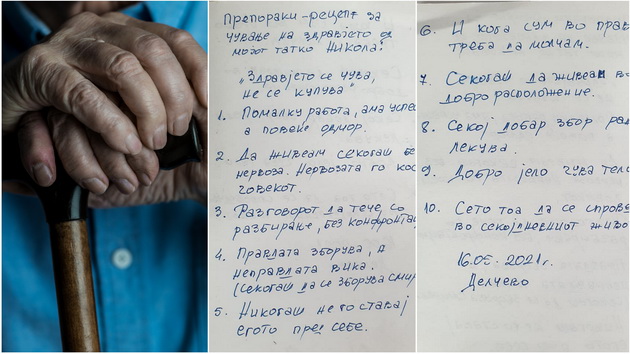 Препораки-рецепт за
чување на здравјето од
мојот татко Никола:
„Здравјето се чува,
не се купува"
1. Помалку работа, ама
а повеќе одмор.
2. Да живеам секогаш
нервоза. Нервозата го
човекот.
3. Разговорот да тече со
разбирање, без
4. Правдата зборува, а
неправдата вика.
(Секогаш да се зборува
5. Никогаш не го ставај
егото пред себе.
6. И кога сум во
треба да молчам.
7. Секогаш да живеам во
добро расположение.
8. Секој добар збор
лекува.
9. Добро јело чува
10. Сето тоа да се
во секојдневниот
16.05.2021г.
Делчево